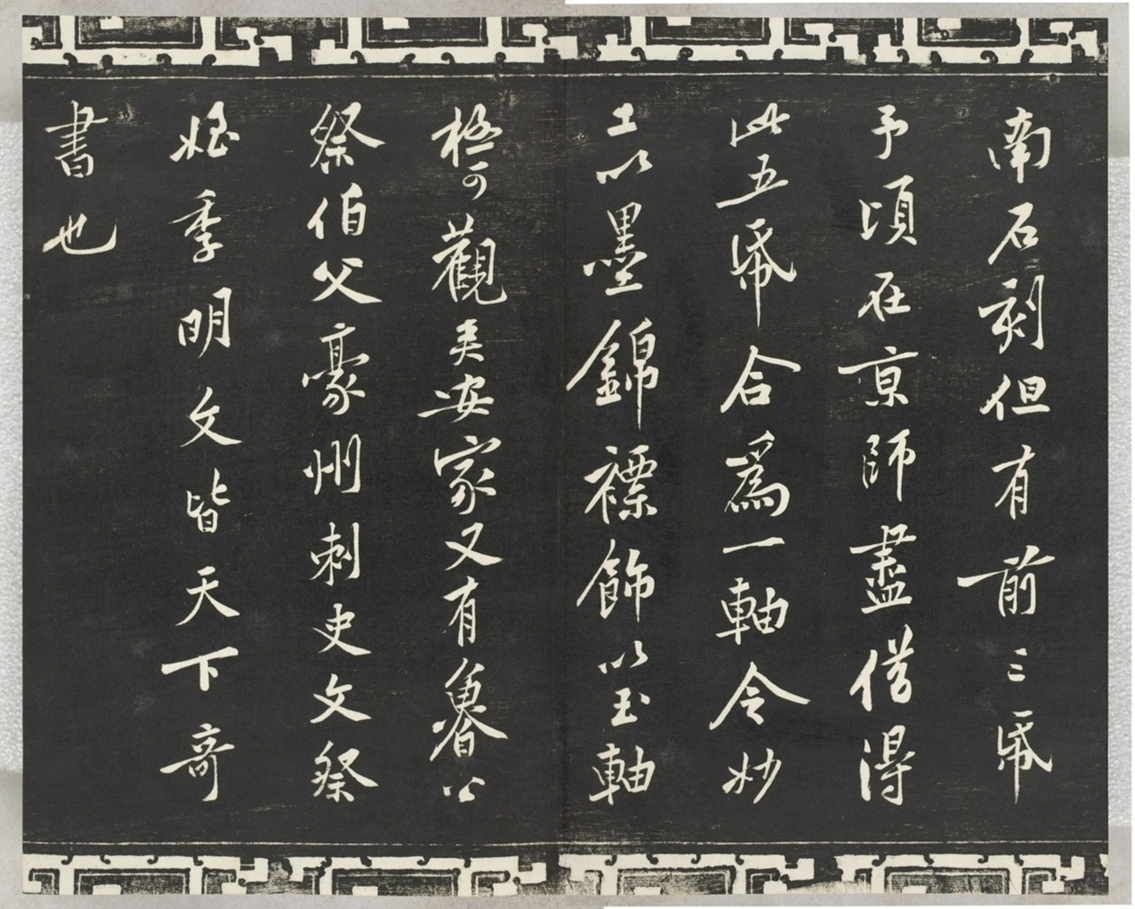 南石刻但有前三帋
予頃在京師盡借得
此五帋合爲一軸令妙
工以墨錦褾飾以玉軸
極可觀矣安家又有魯公
祭伯父豪州刺史文祭
姪季明文皆天下奇
書也